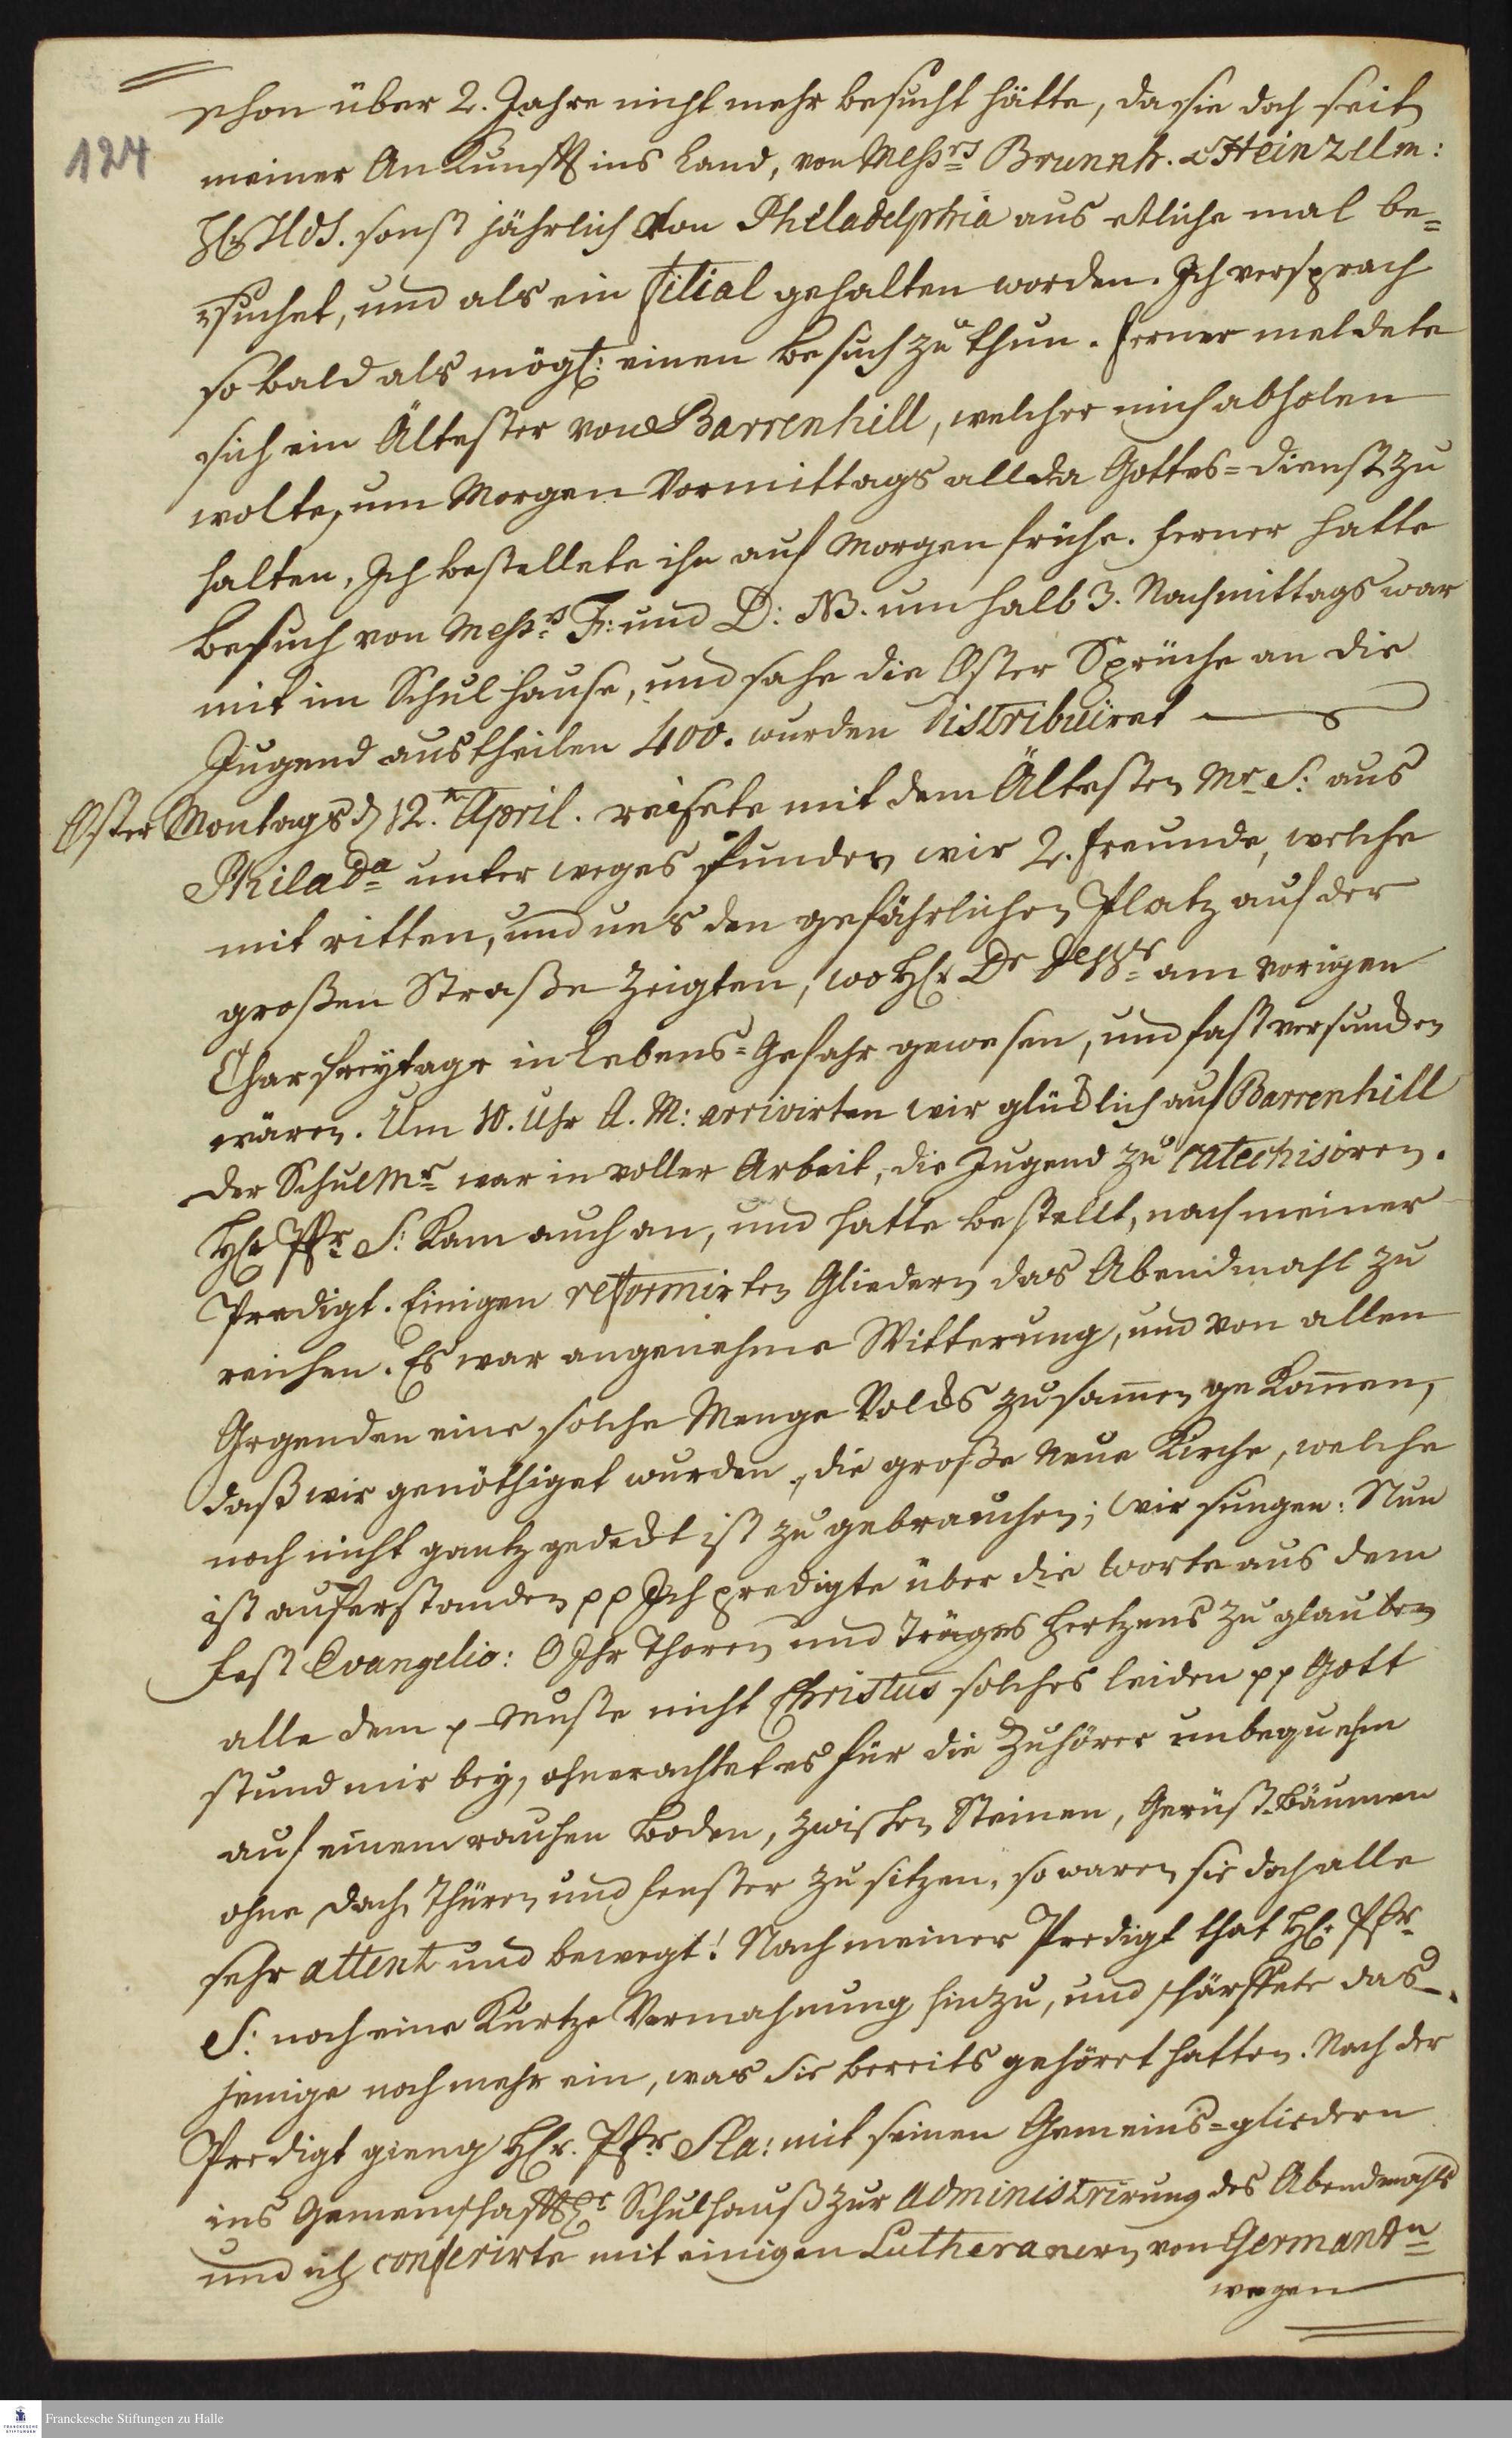 124
schon über 2. Jahre nicht mehr besucht hätte, da sie doch seit
meiner Ankunfft ins Land, von Messrs Brunnh. & Heinzelm:
Hds. sonst jährlich von Philadelphia aus etliche mal be=
suchet, und als ein filial gehalten worden. Ich versprach
so bald als mögl: einen Besuch zu thun. Ferner meldete
sich ein Ältester von Barrenhill, welcher mich abholen
wolte, um Morgen Vormittags allda Gottes=dienst zu
halten, Ich bestellete ihn auf Morgen frühe. Ferner hatte
Besuch von Messrs F: und D: NB. um halb 3. Nachmittags war
mit im Schulhause, und sahe die Oster Sprüche an die
Jugend austheilen 400. wurden distribuiret
Oster Montags d 12.n April. reisete mit dem Ältesten Mr S: aus
Philada unter weges funden wir 2. Freunde, welche
mit ritten, und uns den gefährlichen Platz auf der
großen Straße zeigten, wo Hr Dr am vorigen
Charfreytage in Lebens=Gefahr gewesen, und fast versunken
wären. Um 10. Uhr A. M: arrivirten wir glücklich auf Barrenhill
der SchulMr war in voller Arbeit, die Jugend zu catechisiren.
Hr Pfr S: kam auch an, und hatte bestellt, nach meiner
Predigt. Einigen reformirten Gliedern das Abendmahl zu
reichen. Es war angenehme Witterung, und von allen
Gegenden eine solche Menge Volcks zusam̄en gekom̄en,
daß wir genöthiget wurden, die große neue Kirche, welche
noch nicht gantz gedeckt ist zu gebrauchen; wir sungen: Nun
ist auferstanden pp Ich predigte über die Worte aus dem
Fest Evangelio: O Ihr Thoren und Träges Hertzens zu glauben
alle dem p Muste nicht Christus solches leiden pp Gott
stund mir bey, ohnerachtet es für die Zuhörer unbequehm
auf einem rauhen Boden, zwischen Steinen, Gerüst-Bäumen
ohne Dach, Thüren und Fenster zu sitzen, so waren sie doch alle
sehr attent und bewegt! Nach meiner Predigt that Hr Pfr
S: noch eine Kurtze Vermahnung hinzu, und schärffete das=
jenige noch mehr ein, was sie bereits gehöret hatten. Nach der
Predigt gieng Hr. Pfr Sla: mit seinen Gemeins=gliedern
ins Gemeinschafftl: Schulhauß zur administrirung des Abendmahls
und ich conferirte mit einigen Lutheranern von Germantn
wegen
Franckesche Stiftungen zu Halle